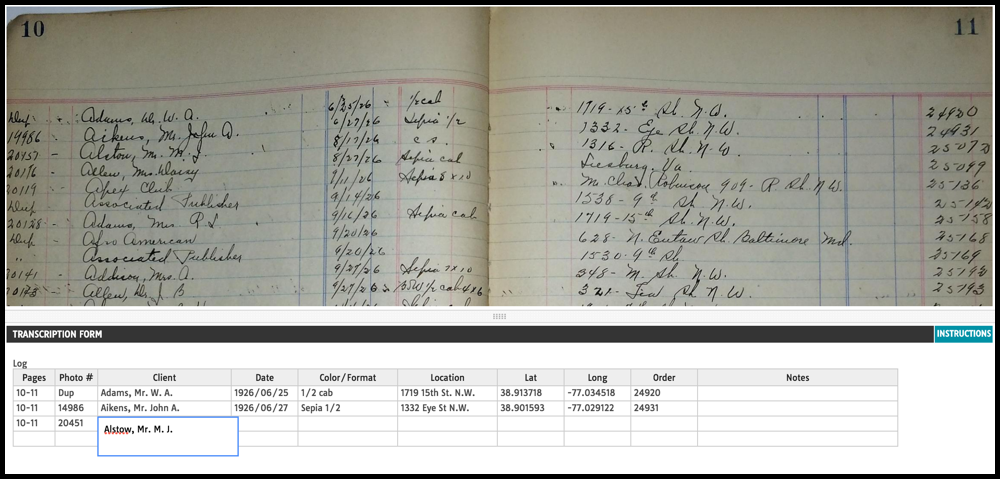 10
11
Dup Adams, Dr. W. A. 6/25/26 " 1/2 cab 1719 - 15th St. N.W. 24920
Aikens, Mr. John A. 6/27/26 Sepia 1/2 1332 - Eye St. N.W. 24931
Alston, Mr. M. J. 8/17/26 C.S. 1316 - R. St. N.W.
Allen, Mrs Daisy 8/27/26 Sepia cab Leesburg, Va. 25099
20119 Apex Club 9/11/26 Sepia 8 x 10 Mr. Chas. Robinson 909 - R St. N.W. 25136
Dup Associated Publisher 9/14/26 1538 - 9th St. N.W.
20128 - Adams, Mrs R. L 9/16/26 Sepia cab 1719 - 15th St. N.W. 25158
Dup Afro American 9/20/26 628 - N. Eutaw St. Baltimore Md. 25168
" Associated Publisher 9/20/26 1530 - 9th St. 25169
20141 - Addison, Mrs. A. 9/27/26 Sepia 7x10 348 - M. St. N.W.
Allen, Dr. J. B 9/27/26 B&W 1/2 cab 4x6 321 - St. N.W. 25193
TRANSCRIPTION FORM
INSTRUCTIONS
Log
Pages Photo # Client Date Color/Format Location Lat Long Order Notes
10-11 Dup Adams, Mr. W. A. 1926/06/25 1/2 cab 1719 15th St. N.W. 38.913718 -77.034518 24920
10-11 14986 Aikens, Mr. John A. 1926/06/27 Sepia 1/2 1332 Eye St N.W. 38.901593 -77.029122 24931
10-11 20451 Alstow, Mr. M. J.